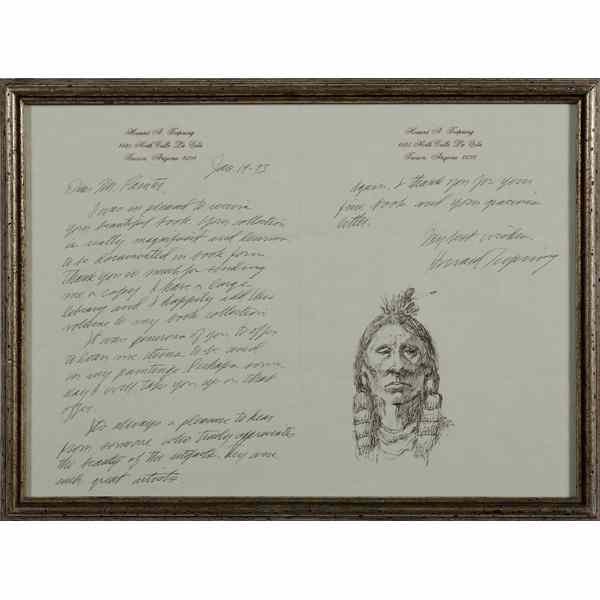 Howard A. Terpning
North Calle La Cela
Tucson, Arizona
Jan. 19-93
Dear Mr. Painter
I was so pleased to receive
your beautiful book. Your collection
is really magnificent and deserves
to be documented in book form.
Thank you so much for sending
me a copy. I have a large
library and I happily add this
volume to my book collection.
It was generous of you to offer
to loan me items to be used
in my paintings. Perhaps some
day I will take you up on that
offer.
It's always a pleasure to hear
from someone who truly appreciates
the beauty of the artifacts. They were
such great artists.
Howard A. Terpning
North Calle La Cela
Tucson, Arizona
Again, I thank you for your
fine book and your gracious
letter.
My best wishes
Howard Terpning